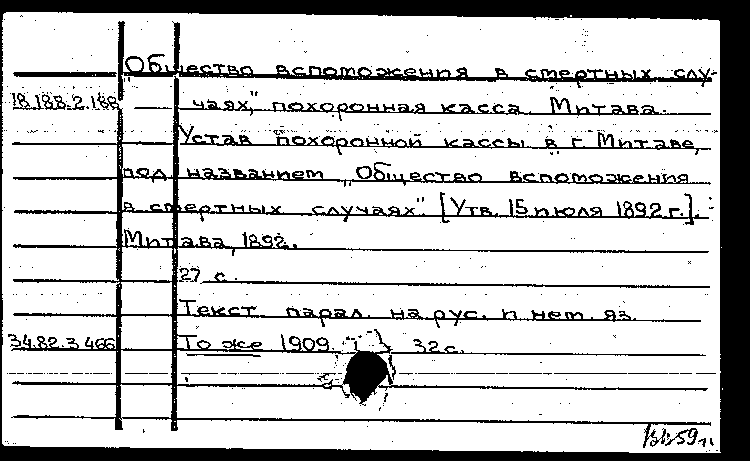 „Общество вспоможения в смертных слу-
18.188.2.188 чаях", похоронная касса. Митава.
Устав похоронной кассы в г. Митаве,
под названием „Общество вспоможения
в смертных случаях". [Утв. 15 июля 1892 г.].
Митава, 1892.
27 с.
Текст парал. на рус. и нем. яз.
34.82.3.466 То же 1909. 32 с.